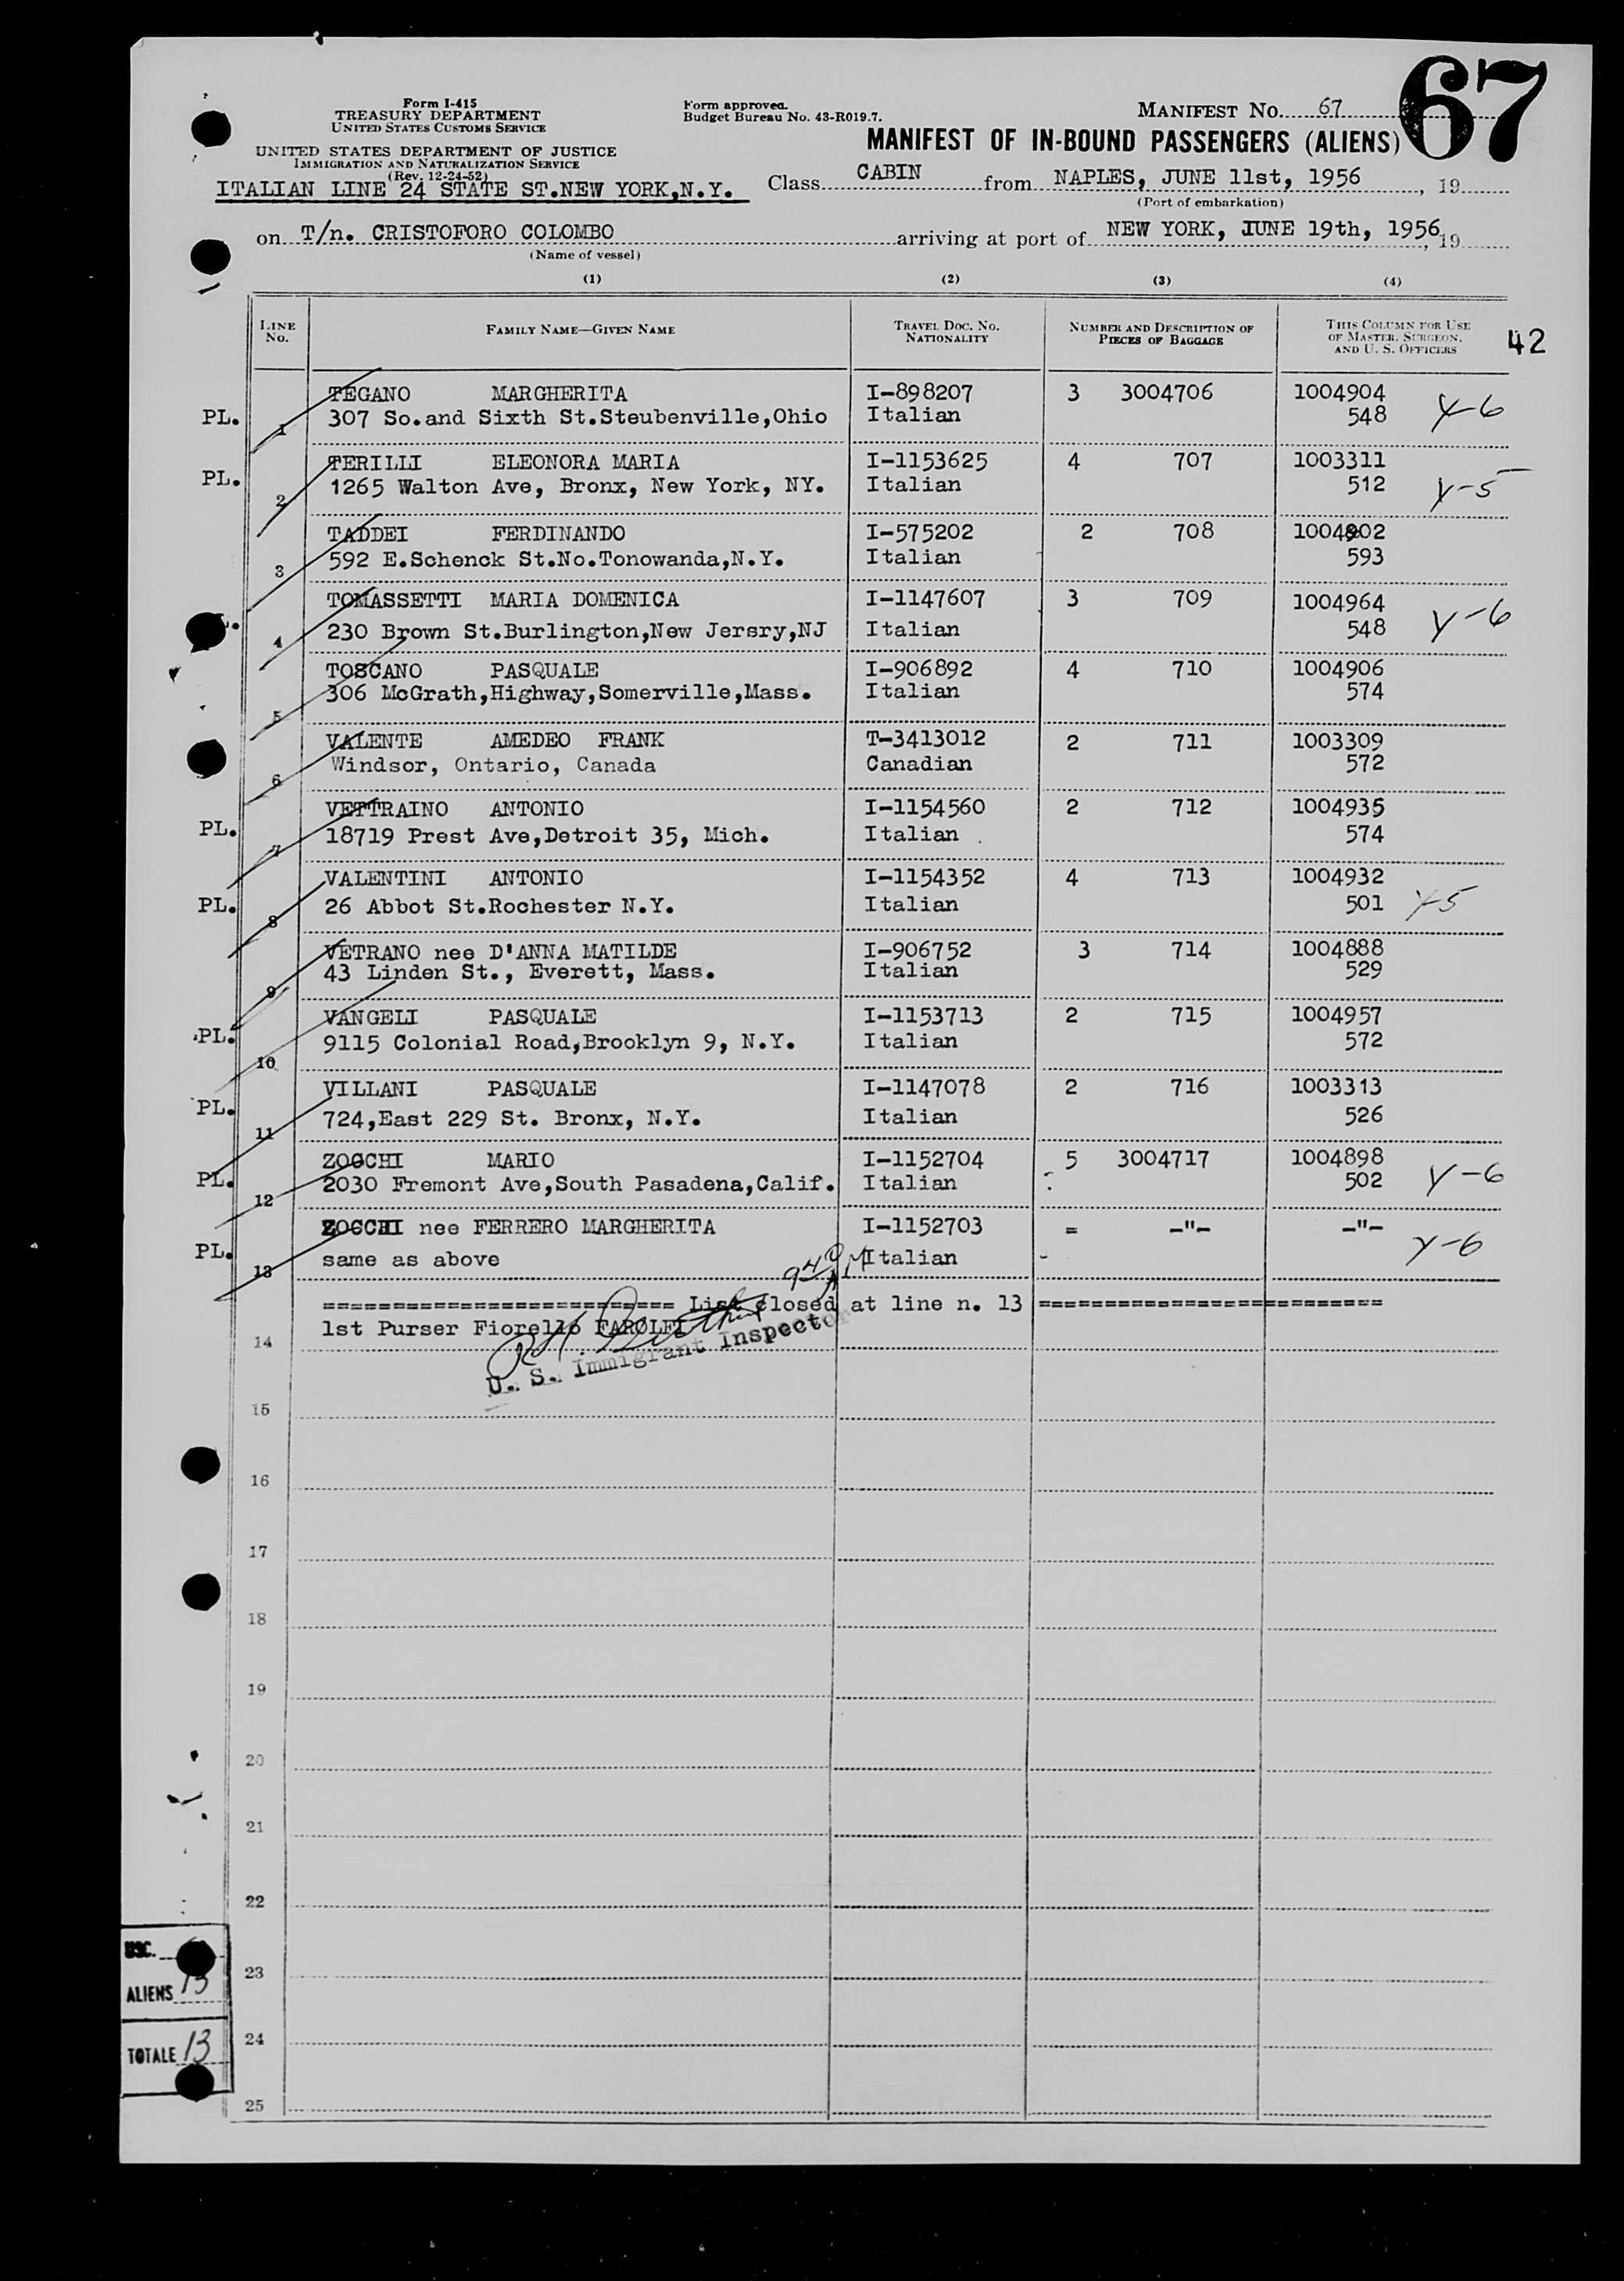 67
Form I-415
TREASURY DEPARTMENT
UNITED STATES CUSTOMS SERVICE
UNITED STATES DEPARTMENT OF JUSTICE
IMMIGRATION AND NATURALIZATION SERVICE
(Rev. 12-24-52)
Form approved.
Budget Bureau No. 43-R019.7.
MANIFEST NO. 67
MANIFEST OF IN-BOUND PASSENGERS (ALIENS)
ITALIAN LINE 24 STATE ST.NEW YORK,N.Y. Class CABIN from NAPLES, JUNE 11st, 1956, 19
(Port of embarkation)
on T/n. CRISTOFORO COLOMBO arriving at port of NEW YORK, JUNE 19th, 1956, 19
(Name of vessel)
(1) (2) (3) (4)
LINE No. FAMILY NAME—GIVEN NAME TRAVEL DOC. NO. NATIONALITY NUMBER AND DESCRIPTION OF PIECES OF BAGGAGE THIS COLUMN FOR USE OF MASTER, SURGEON, AND U. S. OFFICERS 42
TEGANO MARGHERITA I-898207 3 3004706 1004904
PL. 1 307 So.and Sixth St.Steubenville,Ohio Italian 548 Y-6
TERILLI ELEONORA MARIA I-1153625 4 707 1003311
PL. 2 1265 Walton Ave, Bronx, New York, NY. Italian 512 Y-5
TADDEI FERDINANDO I-575202 2 708 1004902
3 592 E.Schenck St.No.Tonowanda,N.Y. Italian 593
TOMASSETTI MARIA DOMENICA I-1147607 3 709 1004964
4 230 Brown St.Burlington,New Jersry,NJ Italian 548 Y-6
TOSCANO PASQUALE I-906892 4 710 1004906
5 306 McGrath,Highway,Somerville,Mass. Italian 574
VALENTE AMEDEO FRANK T-3413012 2 711 1003309
6 Windsor, Ontario, Canada Canadian 572
VETTRAINO ANTONIO I-1154560 2 712 1004935
PL. 7 18719 Prest Ave,Detroit 35, Mich. Italian 574
VALENTINI ANTONIO I-1154352 4 713 1004932
PL. 8 26 Abbot St.Rochester N.Y. Italian 501 Y-5
VETRANO nee D'ANNA MATILDE I-906752 3 714 1004888
9 43 Linden St., Everett, Mass. Italian 529
VANGELI PASQUALE I-1153713 2 715 1004957
PL. 10 9115 Colonial Road,Brooklyn 9, N.Y. Italian 572
VILLANI PASQUALE I-1147078 2 716 1003313
PL. 11 724,East 229 St. Bronx, N.Y. Italian 526
ZOCCHI MARIO I-1152704 5 3004717 1004898
PL. 12 2030 Fremont Ave,South Pasadena,Calif. Italian 502 Y-6
ZOCCHI nee FERRERO MARGHERITA I-1152703 = -"- -"-
PL. 13 same as above Italian Y-6
========================= List closed at line n. 13 =========================
14 1st Purser Fiorello FAROLFI
U. S. Immigrant Inspector
15
16
17
18
19
20
21
22
23
24
25
USC.
ALIENS 13
TOTALE 13